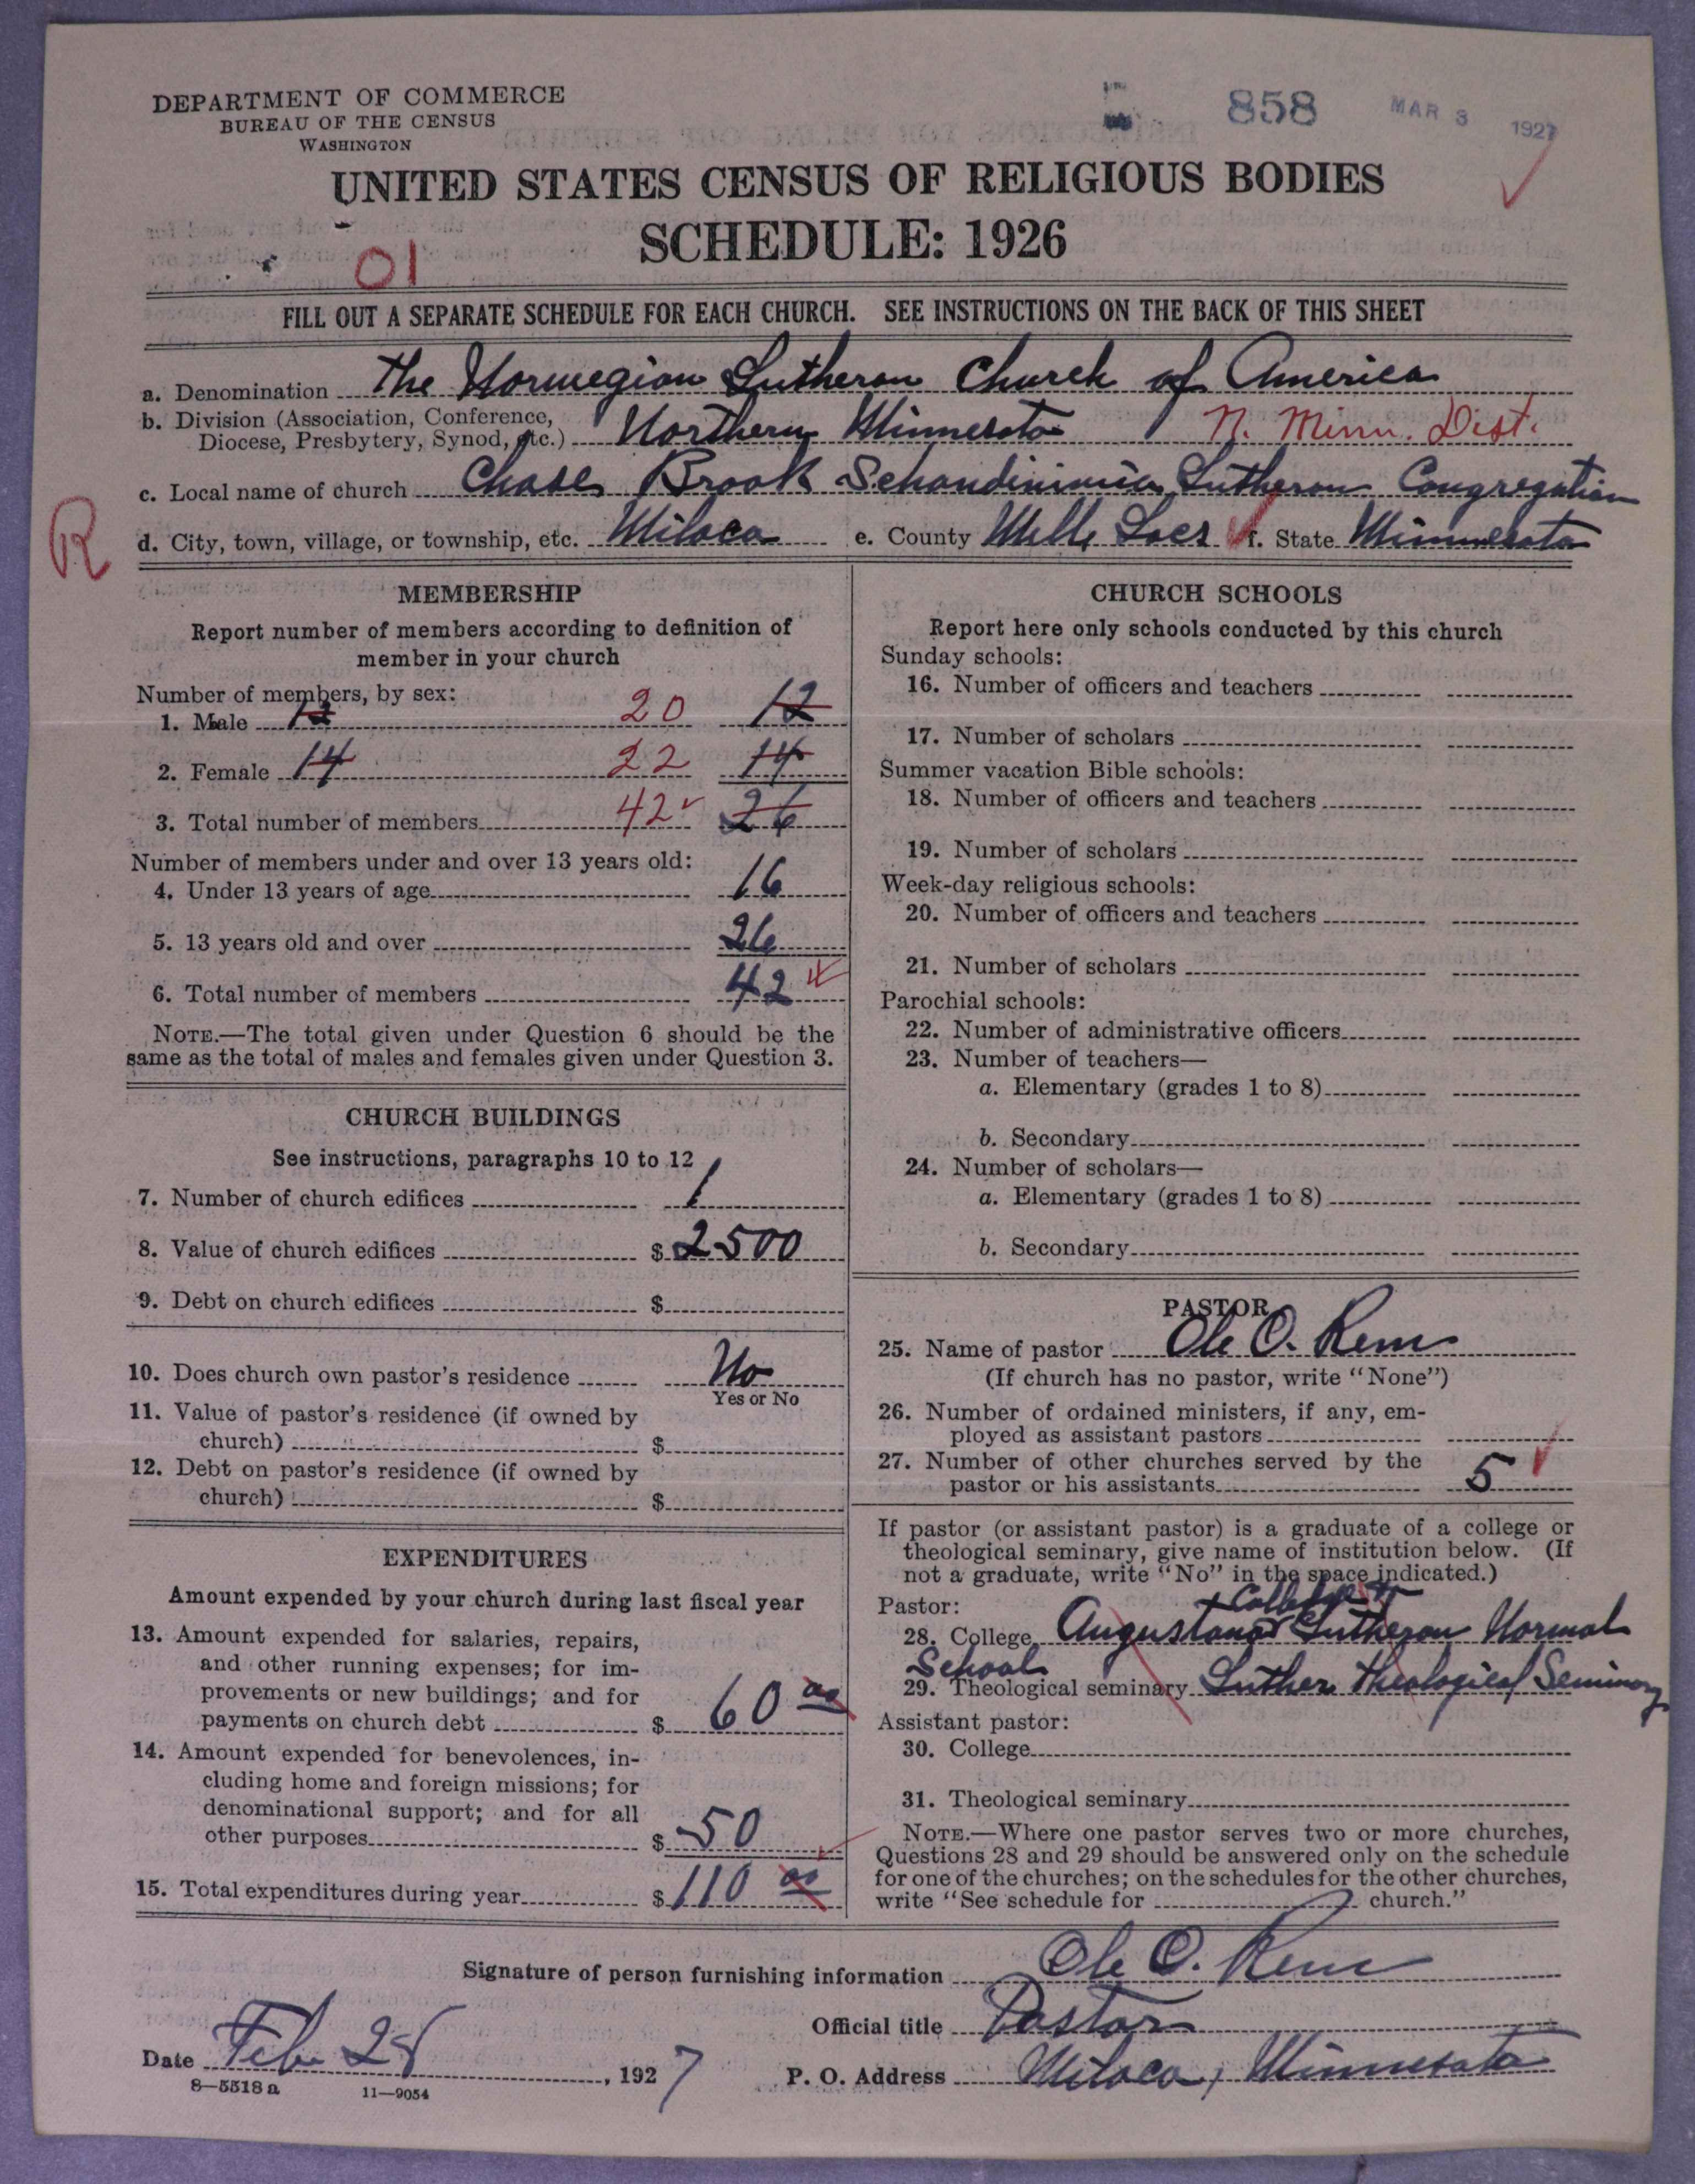 DEPARTMENT OF COMMERCE
BUREAU OF THE CENSUS
WASHINGTON
858 MAR 3 1927
UNITED STATES CENSUS OF RELIGIOUS BODIES
SCHEDULE: 1926
01
FILL OUT A SEPARATE SCHEDULE FOR EACH CHURCH. SEE INSTRUCTIONS ON THE BACK OF THIS SHEET
a. Denomination The Norwegian Lutheran Church of America
b. Division (Association, Conference,
Diocese, Presbytery, Synod, etc.) Northern Minnesota N. Minn. Dist.
c. Local name of church Chase Brook Lutheran Congregation
R
d. City, town, village, or township, etc. Milaca e. County Mille Lacs f. State Minnesota
MEMBERSHIP
Report number of members according to definition of
member in your church
Number of members, by sex:
1. Male 12 20 12
2. Female 14 22 14
3. Total number of members 42 26
Number of members under and over 13 years old:
4. Under 13 years of age 16
5. 13 years old and over 26
6. Total number of members 42
NOTE.—The total given under Question 6 should be the
same as the total of males and females given under Question 3.
CHURCH BUILDINGS
See instructions, paragraphs 10 to 12
7. Number of church edifices 1
8. Value of church edifices $ 2500
9. Debt on church edifices $
10. Does church own pastor's residence No
Yes or No
11. Value of pastor's residence (if owned by
church) $
12. Debt on pastor's residence (if owned by
church) $
EXPENDITURES
Amount expended by your church during last fiscal year
13. Amount expended for salaries, repairs,
and other running expenses; for im-
provements or new buildings; and for
payments on church debt $ 60 00
14. Amount expended for benevolences, in-
cluding home and foreign missions; for
denominational support; and for all
other purposes $ 50
15. Total expenditures during year $ 110 00
CHURCH SCHOOLS
Report here only schools conducted by this church
Sunday schools:
16. Number of officers and teachers
17. Number of scholars
Summer vacation Bible schools:
18. Number of officers and teachers
19. Number of scholars
Week-day religious schools:
20. Number of officers and teachers
21. Number of scholars
Parochial schools:
22. Number of administrative officers
23. Number of teachers—
a. Elementary (grades 1 to 8)
b. Secondary
24. Number of scholars—
a. Elementary (grades 1 to 8)
b. Secondary
PASTOR
25. Name of pastor Ole O. Rem
(If church has no pastor, write "None")
26. Number of ordained ministers, if any, em-
ployed as assistant pastors
27. Number of other churches served by the
pastor or his assistants 5
If pastor (or assistant pastor) is a graduate of a college or
theological seminary, give name of institution below. (If
not a graduate, write "No" in the space indicated.)
Pastor: College
28. College Augustana Lutheran Normal
School
29. Theological seminary Luther Theological Seminary
Assistant pastor:
30. College
31. Theological seminary
NOTE.—Where one pastor serves two or more churches,
Questions 28 and 29 should be answered only on the schedule
for one of the churches; on the schedules for the other churches,
write "See schedule for church."
Signature of person furnishing information Ole O. Rem
Official title Pastor
Date Feb 28, 1927
P. O. Address Milaca, Minnesota
8—5518 a 11—9054